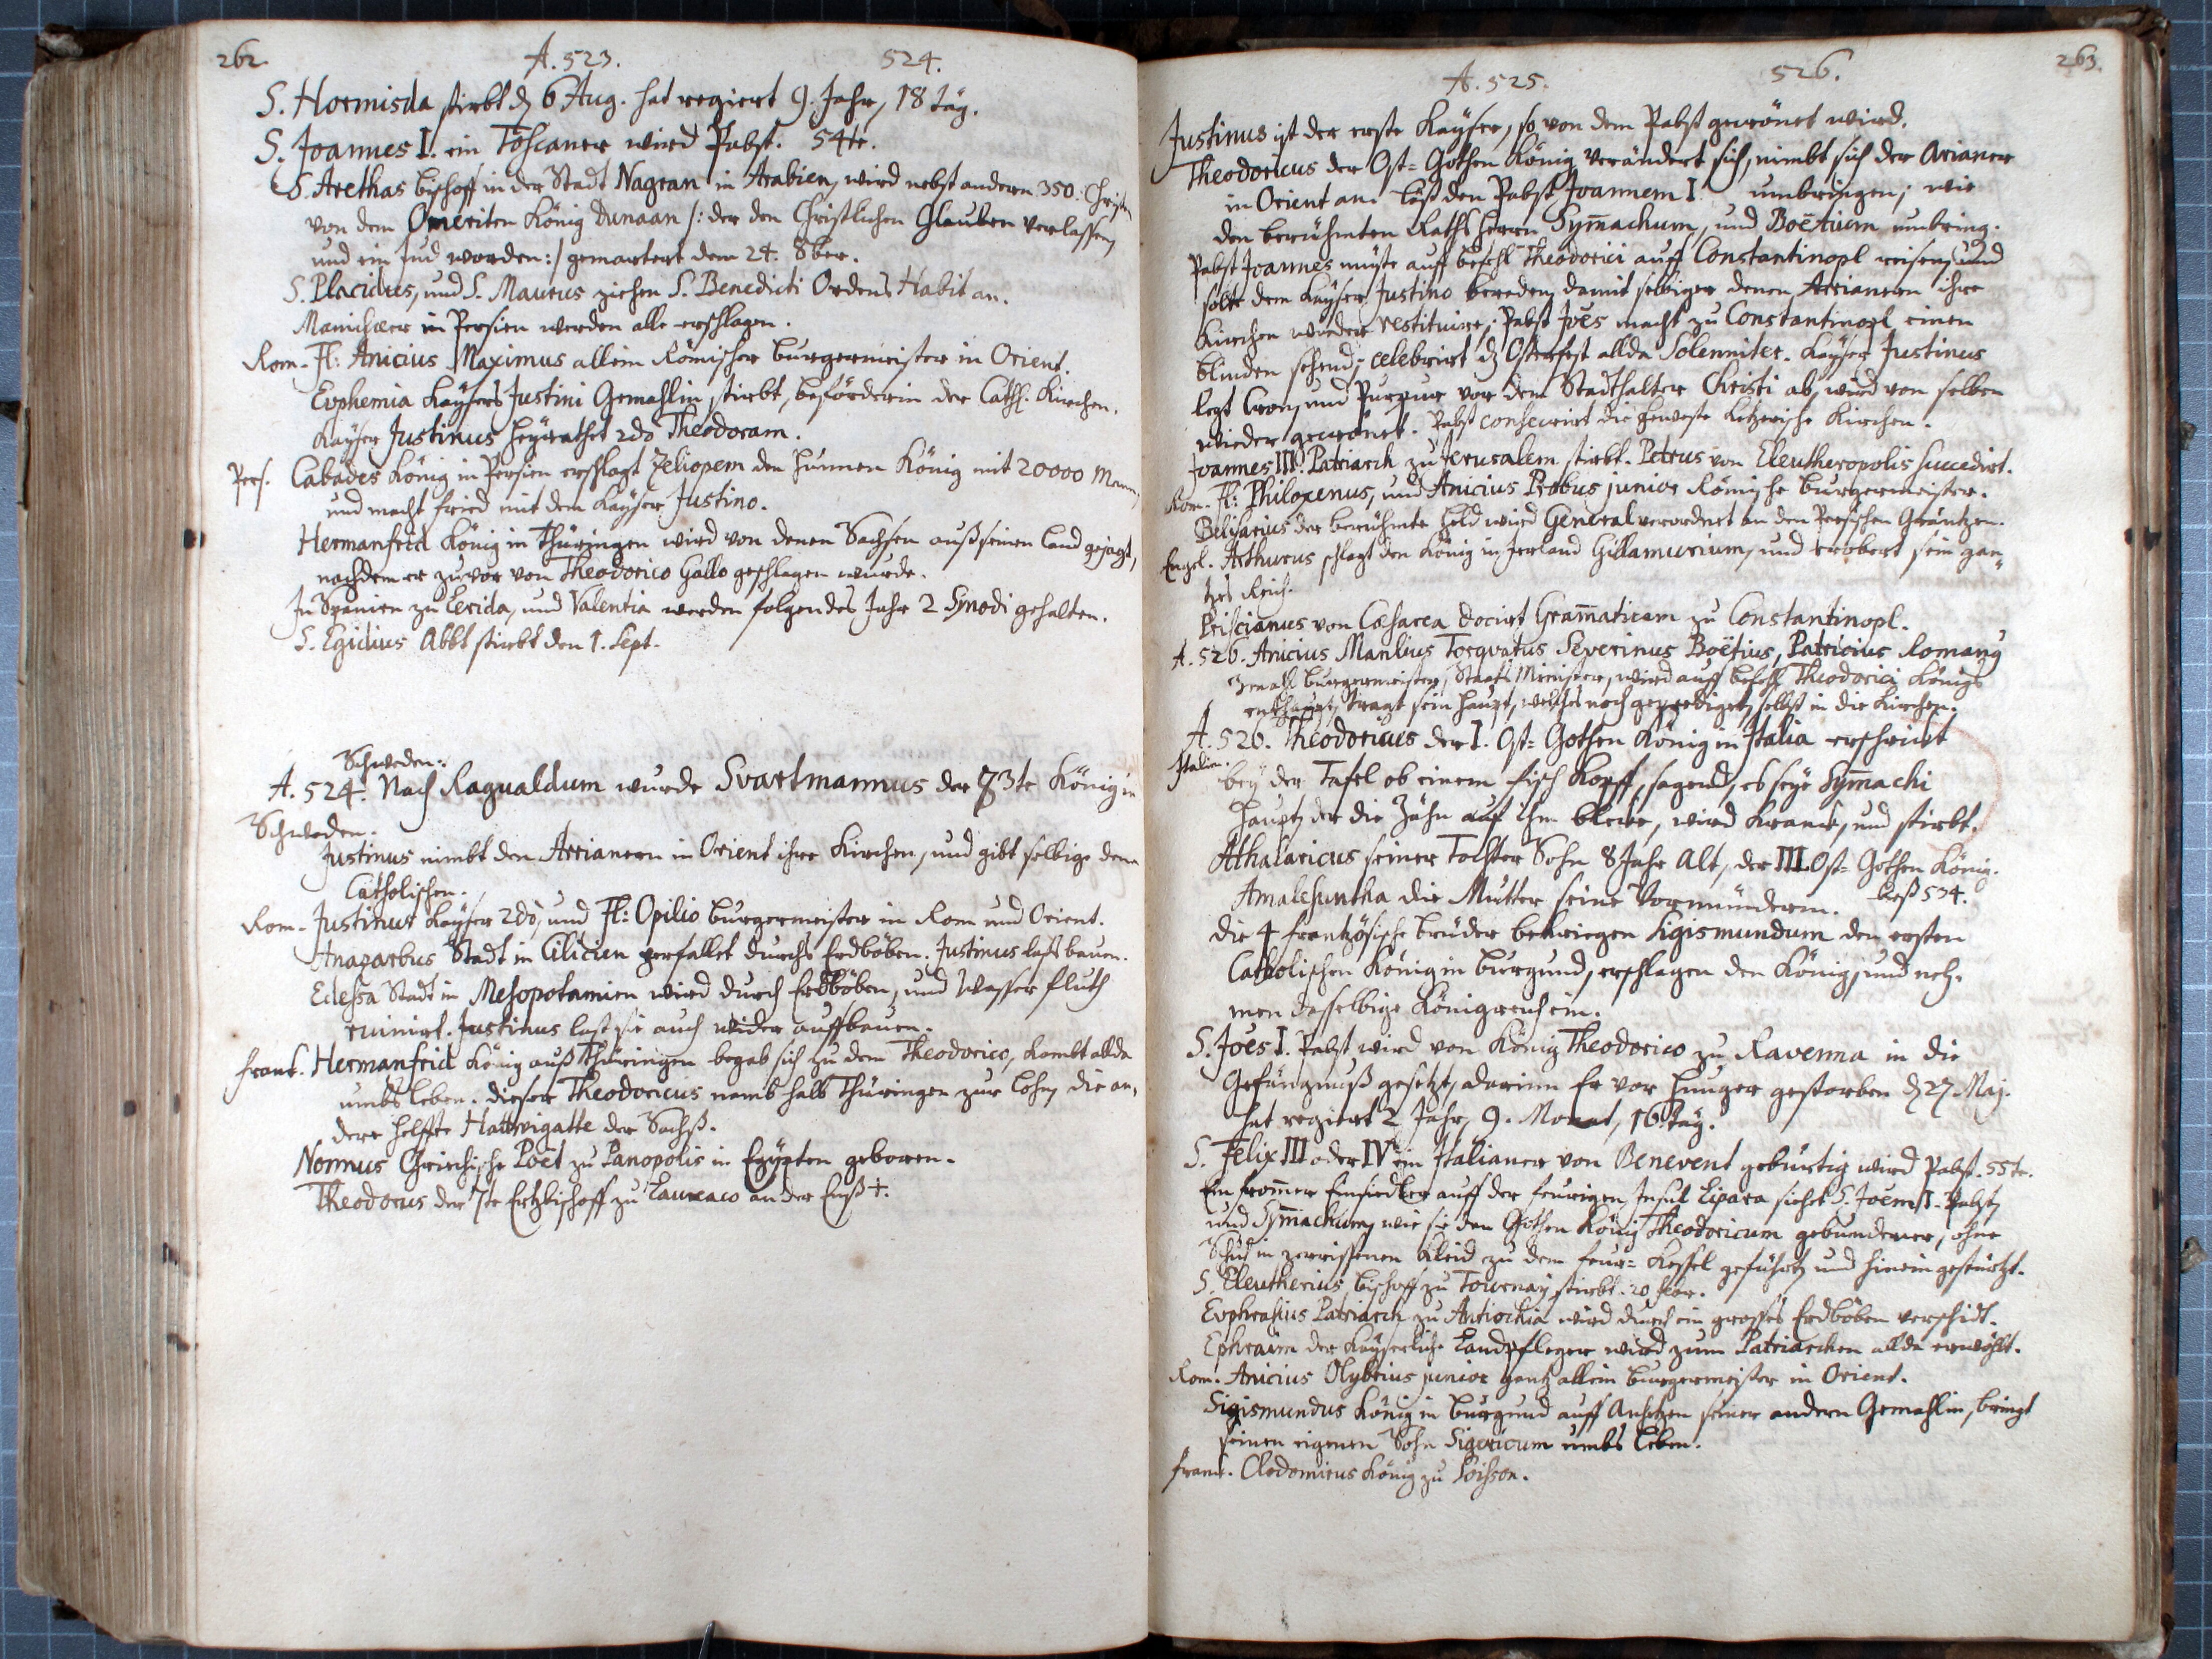 262.
A. 523.
524.
S. Hormisda stirbt dz 6 Aug. hat regiert 9. Jahr, 18 täg.
S. Joannes I. ein Toscaner wird Pabst. 54te.
S. Arethas Bischoff in der Stadt Nagran in Arabien, wird nebst andern 350. Christen
von dem Omeriten König Dunaan /: der den Christlichen Glauben verlassen,
und ein Jud worden :/ gemartert dem 24. 8ber.
S. Placidus, und S. Maurus ziehen S. Benedicti Ordens Habit an.
Manichæer in Persien werden alle erschlagen.
Rom. Fl: Anicius Maximus allein Römischer Burgermeister in Orient.
Euphemia Kaysers Justini Gemahlin stirbt, befördrerin der Cath. Kirchen.
Kayser Justinus heyrathet 2do Theodoram.
Pers. Cabades König in Persien erschlagt Zeliopem den Hunnen König mit 20000 Mann,
und macht fried mit dem Kayser Justino.
Hermanfrid König in Thüringen wird von denen Sachsen auß seinen Land gejagt,
nachdem er zuvor von Theodorico Gallo geschlagen wurde.
In Spanien zu Lerida, und Valentia werden folgendes Jahr 2 Synodi gehalten.
S. Egidius Abbt stirbt den 1. Sept.
Schweden.
A. 524. Nach Ragualdum wurde Svartmannus der 73te König in
Schweden.
Justinus nimbt den Arrianern in Orient ihre Kirchen, und gibt selbige denen
Catholischen.
Rom. Justinus Kayser 2do, und Fl: Opilio Burgermeister in Rom und Orient.
Anazarbus Stadt in Cilicien zerfallet durchs Erdböben. Justinus lasts bauen.
Edessa Stadt in Mesopotamien wird durch Erdböben, und Wasser fluth
ruinirt. Justinus last sie auch wider auffbauen.
Frank. Hermanfrid König auß Thüringen begab sich zu dem Theodorico, kombt allda
umbs Leben. dieser Theodoricus namb halb Thüringen zur Lohn, die an,
dere helffte Hattwigatte der Sachß.
Nonnus Griechische Poët zu Panopolis in Egypten geboren.
Theodorus der 7te Ertzbischoff zu Laureaco an der Enß †.
263.
A. 525.
526.
Justinus ist der erste Kayser, so von dem Pabst gecrönet wird.
Theodoricus der Ost=Gothen König verändert sich, nimbt sich der Arianer
in Orient an. läst den Pabst Joannem I. umbringen; wie
den berühmten Raths Herrn Sym̄achum, und Boëtium umbring.
Pabst Joannes müste auff befehl Theodorici auff Constantinopl reisen, und
solte dem Kayser Justino bereden, damit selbiger denen Arrianern ihre
Kirchen wieder restituire; Pabst Joēs macht zu Constantinopl einen
blinden sehend; celebrirt dz Osterfest allda Solenniter. Kayser Justinus
legt Cron, und Purpur vor dem Stadthalter Christi ab, wird von selben
wieder gecrönet. Pabst consecrirt die Ketzerische Kirchen.
Joannes III. Patriarch zu Jerusalem stirbt. Petrus von Eleutheropolis succedirt.
Rom. Fl: Philoxenus, und Anicius Probus junior Römische Burgermeister.
Belisarius der berühmte Held wird General verordnet an den Persischen Gräntzen.
Engel. Arthurus schlagt den König in Irrland Gillamurium, und erobert sein gan=
tzes Reich.
Priscianus von Cæsarea docirt Gram̄aticam zu Constantinopl.
A. 526. Anicius Manlius Torqvatus Severinus Boëtius, Patricius Romang
3mahl Burgermeister, Staats Minister, wird auff befehl Theodorici Königs
enthaupt, tragt sein Haupt, welches noch geprediget, selbst in die Kirchen.
A. 526. Theodoricus der I. Ost=Gothen König in Italia erschrickt
Italien.
bey der Tafel ob einem fisch Kopff, sagend, es seye Sym̄achi
Haupt, der die Zähn auf ihn blecke, wird kranck, und stirbt.
Athalaricus seiner Tochter Sohn 8 Jahr alt, der III. Ost=Gothen König.
Amalesuntha die Mutter seine Vormünderin. biß 534.
Die 4 frantzösische Brüder bekriegen Sigismundum den ersten
Catholischen König in Burgund, erschlagen den König, und neh=
men dasselbige Königreich ein.
S. Joēs I. Pabst wird von König Theodorico zu Ravenna in die
Gefängnuß gesetzt, darinn Er vor Hunger gestorben dz 27. Maj.
hat regiert 2 Jahr, 9. Monat, 16 täg.
S. Felix III oder IV ein Italianer von Benevent gebürtig wird Pabst. 55te.
Ein from̄er Einsiedler auff der feurigen Insul Lipara sieht S. Joēm I. Pabst,
und Sym̄achum, wie sie den Gothen König Theodoricum gebundener, ohne
Schuh in zerrissenen Kleid zu dem feur=Kessel geführt, und hinein gestürtzt.
S. Eleutherius Bischoff zu Tournay stirbt. 20 febr.
Euphrasius Patriarch zu Antiochia wird durch ein grosses Erdböben verschidt.
Ephraim der Kayserliche Landpfleger wird zum Patriarchen allda erwöhlt.
Rom. Anicius Olybrius junior gantz allein Burgermeister in Orient.
Sigismundus König in Burgund auff Ansetzen seiner andern Gemahlin, bringt
seinen eigenen Sohn Sigericum umbs Leben.
Frank. Clodomirus König zu Soisson.